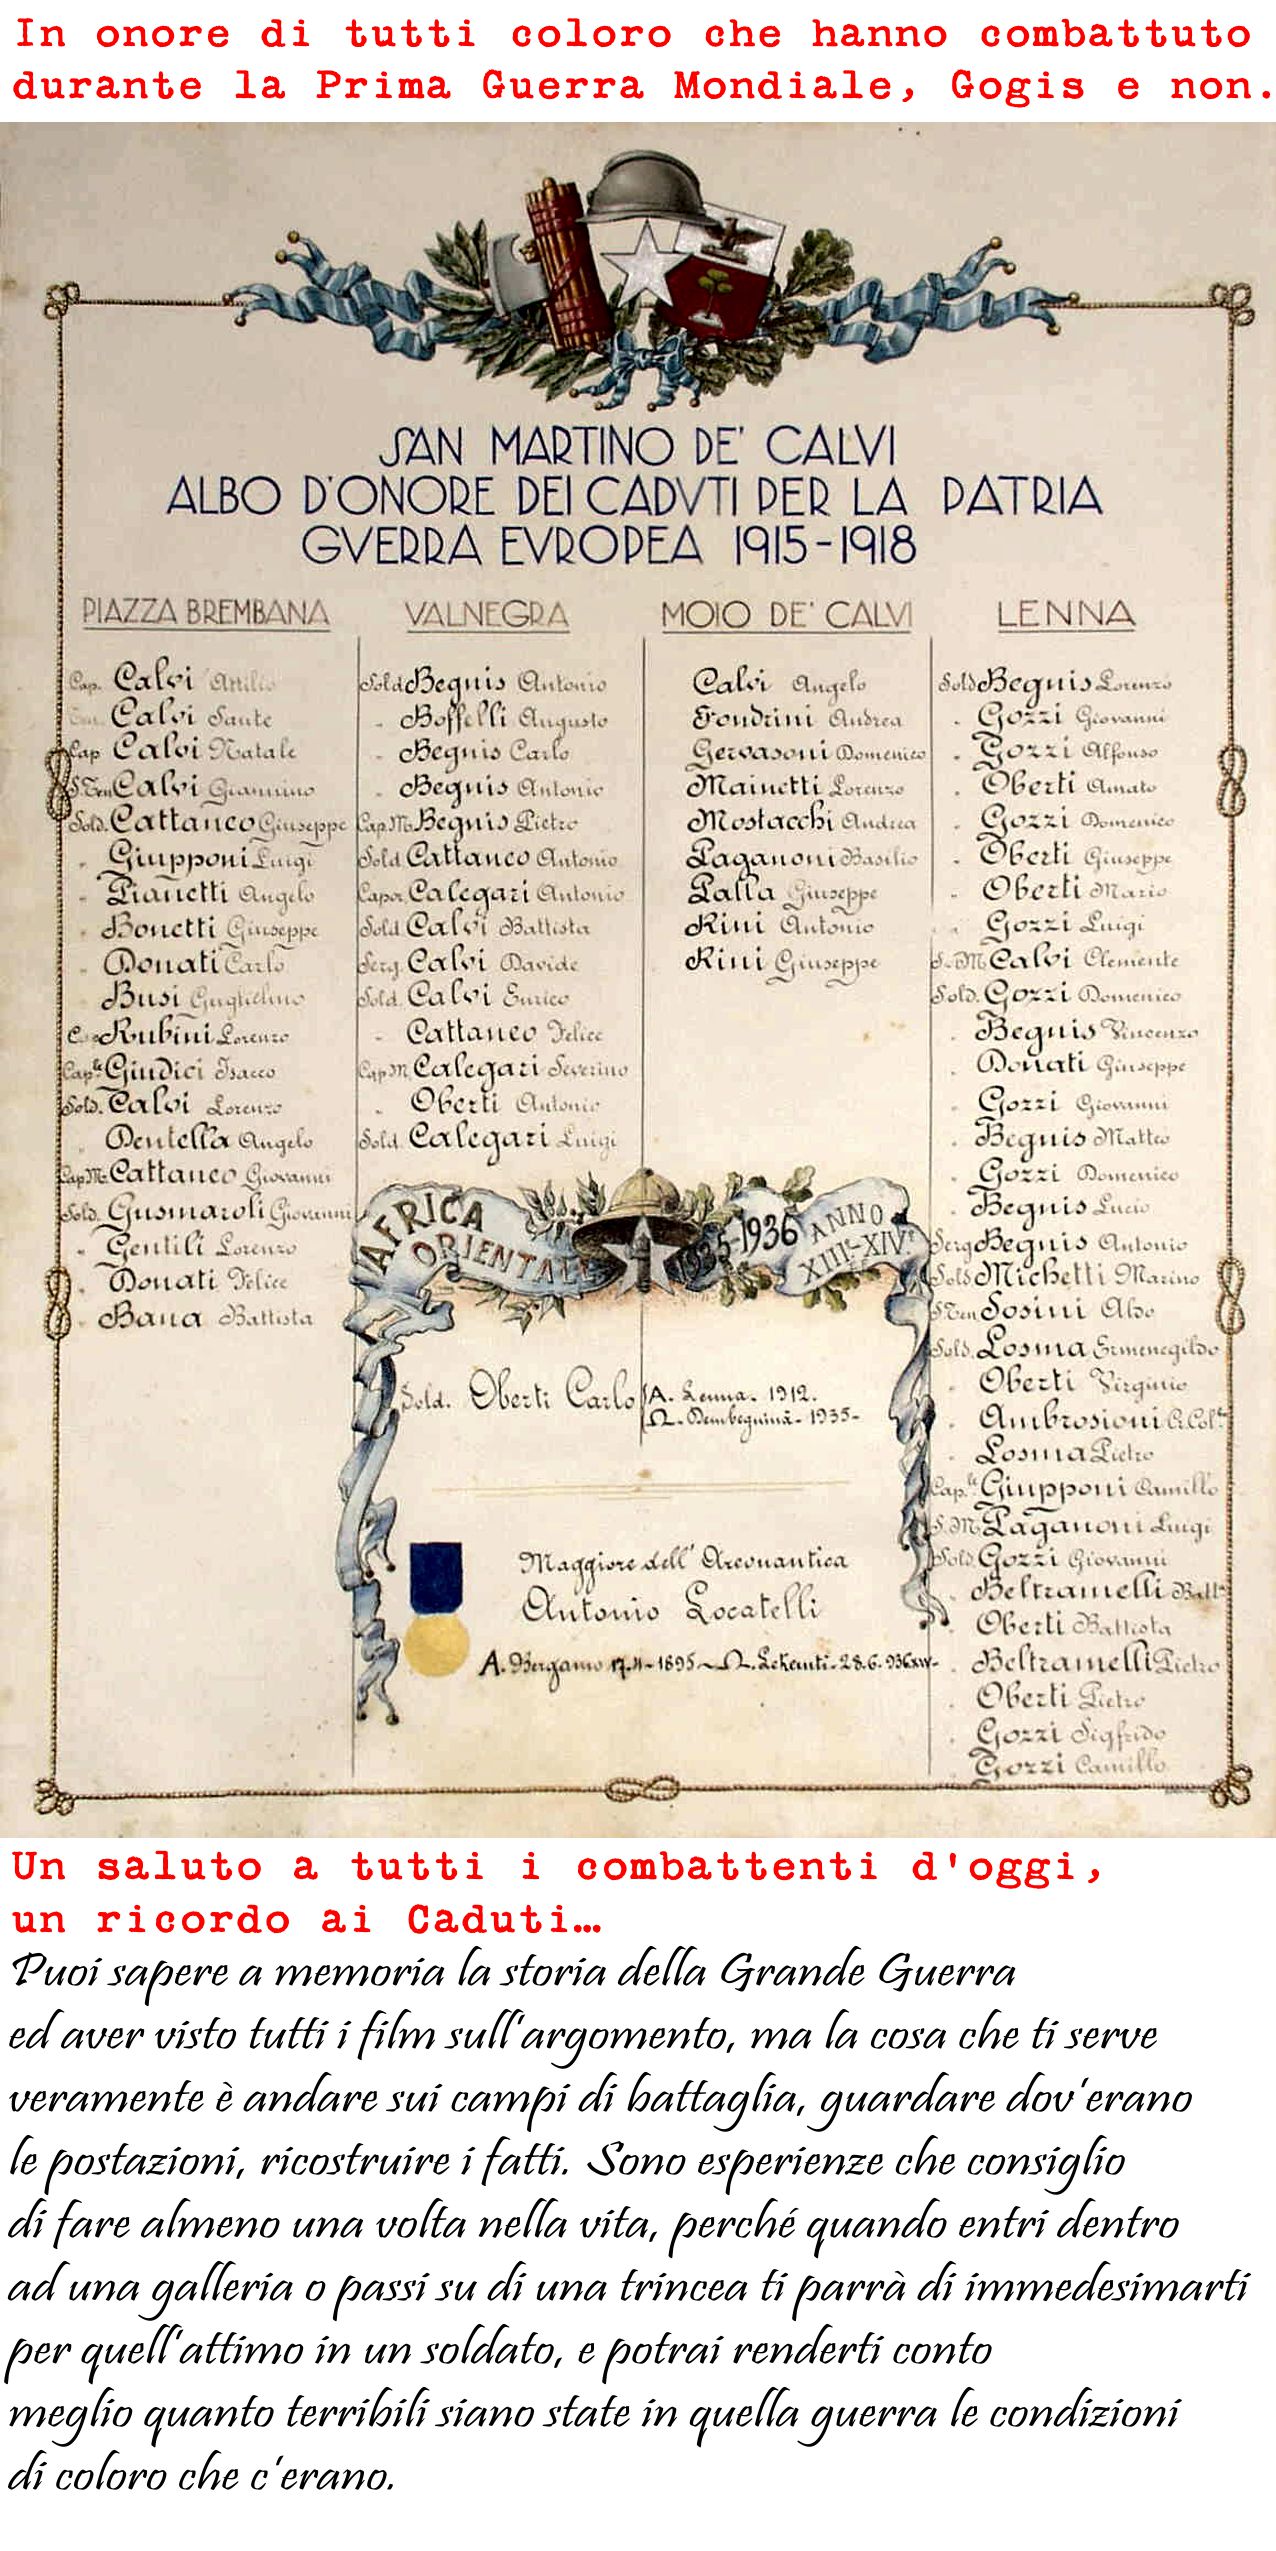 In onore di tutti coloro che hanno combattuto
durante la Prima Guerra Mondiale, Gogis e non.
SAN MARTINO DE' CALVI
ALBO D'ONORE DEI CADVTI PER LA PATRIA
GVERRA EVROPEA 1915-1918
PIAZZA BREMBANA
Cap. Calvi Attilio
Calvi Sante
Cap Calvi Natale
S.Ten Calvi Giannino
Sold. Cattaneo Giuseppe
" Giupponi Luigi
" Pianetti Angelo
" Bonetti Giuseppe
" Donati Carlo
Busi Guglielmo
Rubini Lorenzo
Cap.le Giudici Isacco
Sold. Calvi Lorenzo
" Dentella Angelo
Cap.M. Cattaneo Giovanni
Sold. Gusmaroli Giovanni
" Gentili Lorenzo
" Donati Felice
" Bana Battista
VALNEGRA
Sold. Begnis Antonio
" Boffelli Augusto
" Begnis Carlo
" Begnis Antonio
Cap.M. Begnis Pietro
Sold Cattaneo Antonio
Capor. Calegari Antonio
Sold. Calvi Battista
Serg. Calvi Davide
Sold. Calvi Enrico
" Cattaneo Felice
Cap.M. Calegari Severino
" Oberti Antonio
Sold. Calegari Luigi
MOIO DE' CALVI
Calvi Angelo
Fondrini Andrea
Gervasoni Domenico
Mainetti Lorenzo
Mostacchi Andrea
Paganoni Basilio
Palla Giuseppe
Rini Antonio
Rini Giuseppe
LENNA
Sold Begnis Lorenzo
" Gozzi Giovanni
" Gozzi Alfonso
" Oberti Amato
" Gozzi Domenico
" Oberti Giuseppe
" Oberti Mario
" Gozzi Luigi
S.M. Calvi Clemente
Sold. Gozzi Domenico
" Begnis Vincenzo
" Donati Giuseppe
" Gozzi Giovanni
" Begnis Matteo
" Gozzi Domenico
" Begnis Lucio
Serg Begnis Antonio
Sold Michetti Marino
S.Ten Sosini Aldo
Sold. Losma Ermenegildo
" Oberti Virginio
" Ambrosioni
" Losma Pietro
Cap.le Giupponi Camillo
S.M. Paganoni Luigi
Sold. Gozzi Giovanni
Beltramelli Batt.
" Oberti Battista
" Beltramelli Pietro
" Oberti Pietro
" Gozzi Sigfrido
" Gozzi Camillo
AFRICA
ORIENTALE
1935-1936 ANNO
XIII°-XIV°
Sold. Oberti Carlo A. Lenna. 1912.
Ω. Dembeguinà. 1935-
Maggiore dell' Areonautica
Antonio Locatelli
A. Bergamo 1895 Ω. Lekemti. 28.6.936
Un saluto a tutti i combattenti d'oggi,
un ricordo ai Caduti…
Puoi sapere a memoria la storia della Grande Guerra
ed aver visto tutti i film sull'argomento, ma la cosa che ti serve
veramente è andare sui campi di battaglia, guardare dov'erano
le postazioni, ricostruire i fatti. Sono esperienze che consiglio
di fare almeno una volta nella vita, perché quando entri dentro
ad una galleria o passi su di una trincea ti parrà di immedesimarti
per quell'attimo in un soldato, e potrai renderti conto
meglio quanto terribili siano state in quella guerra le condizioni
di coloro che c'erano.